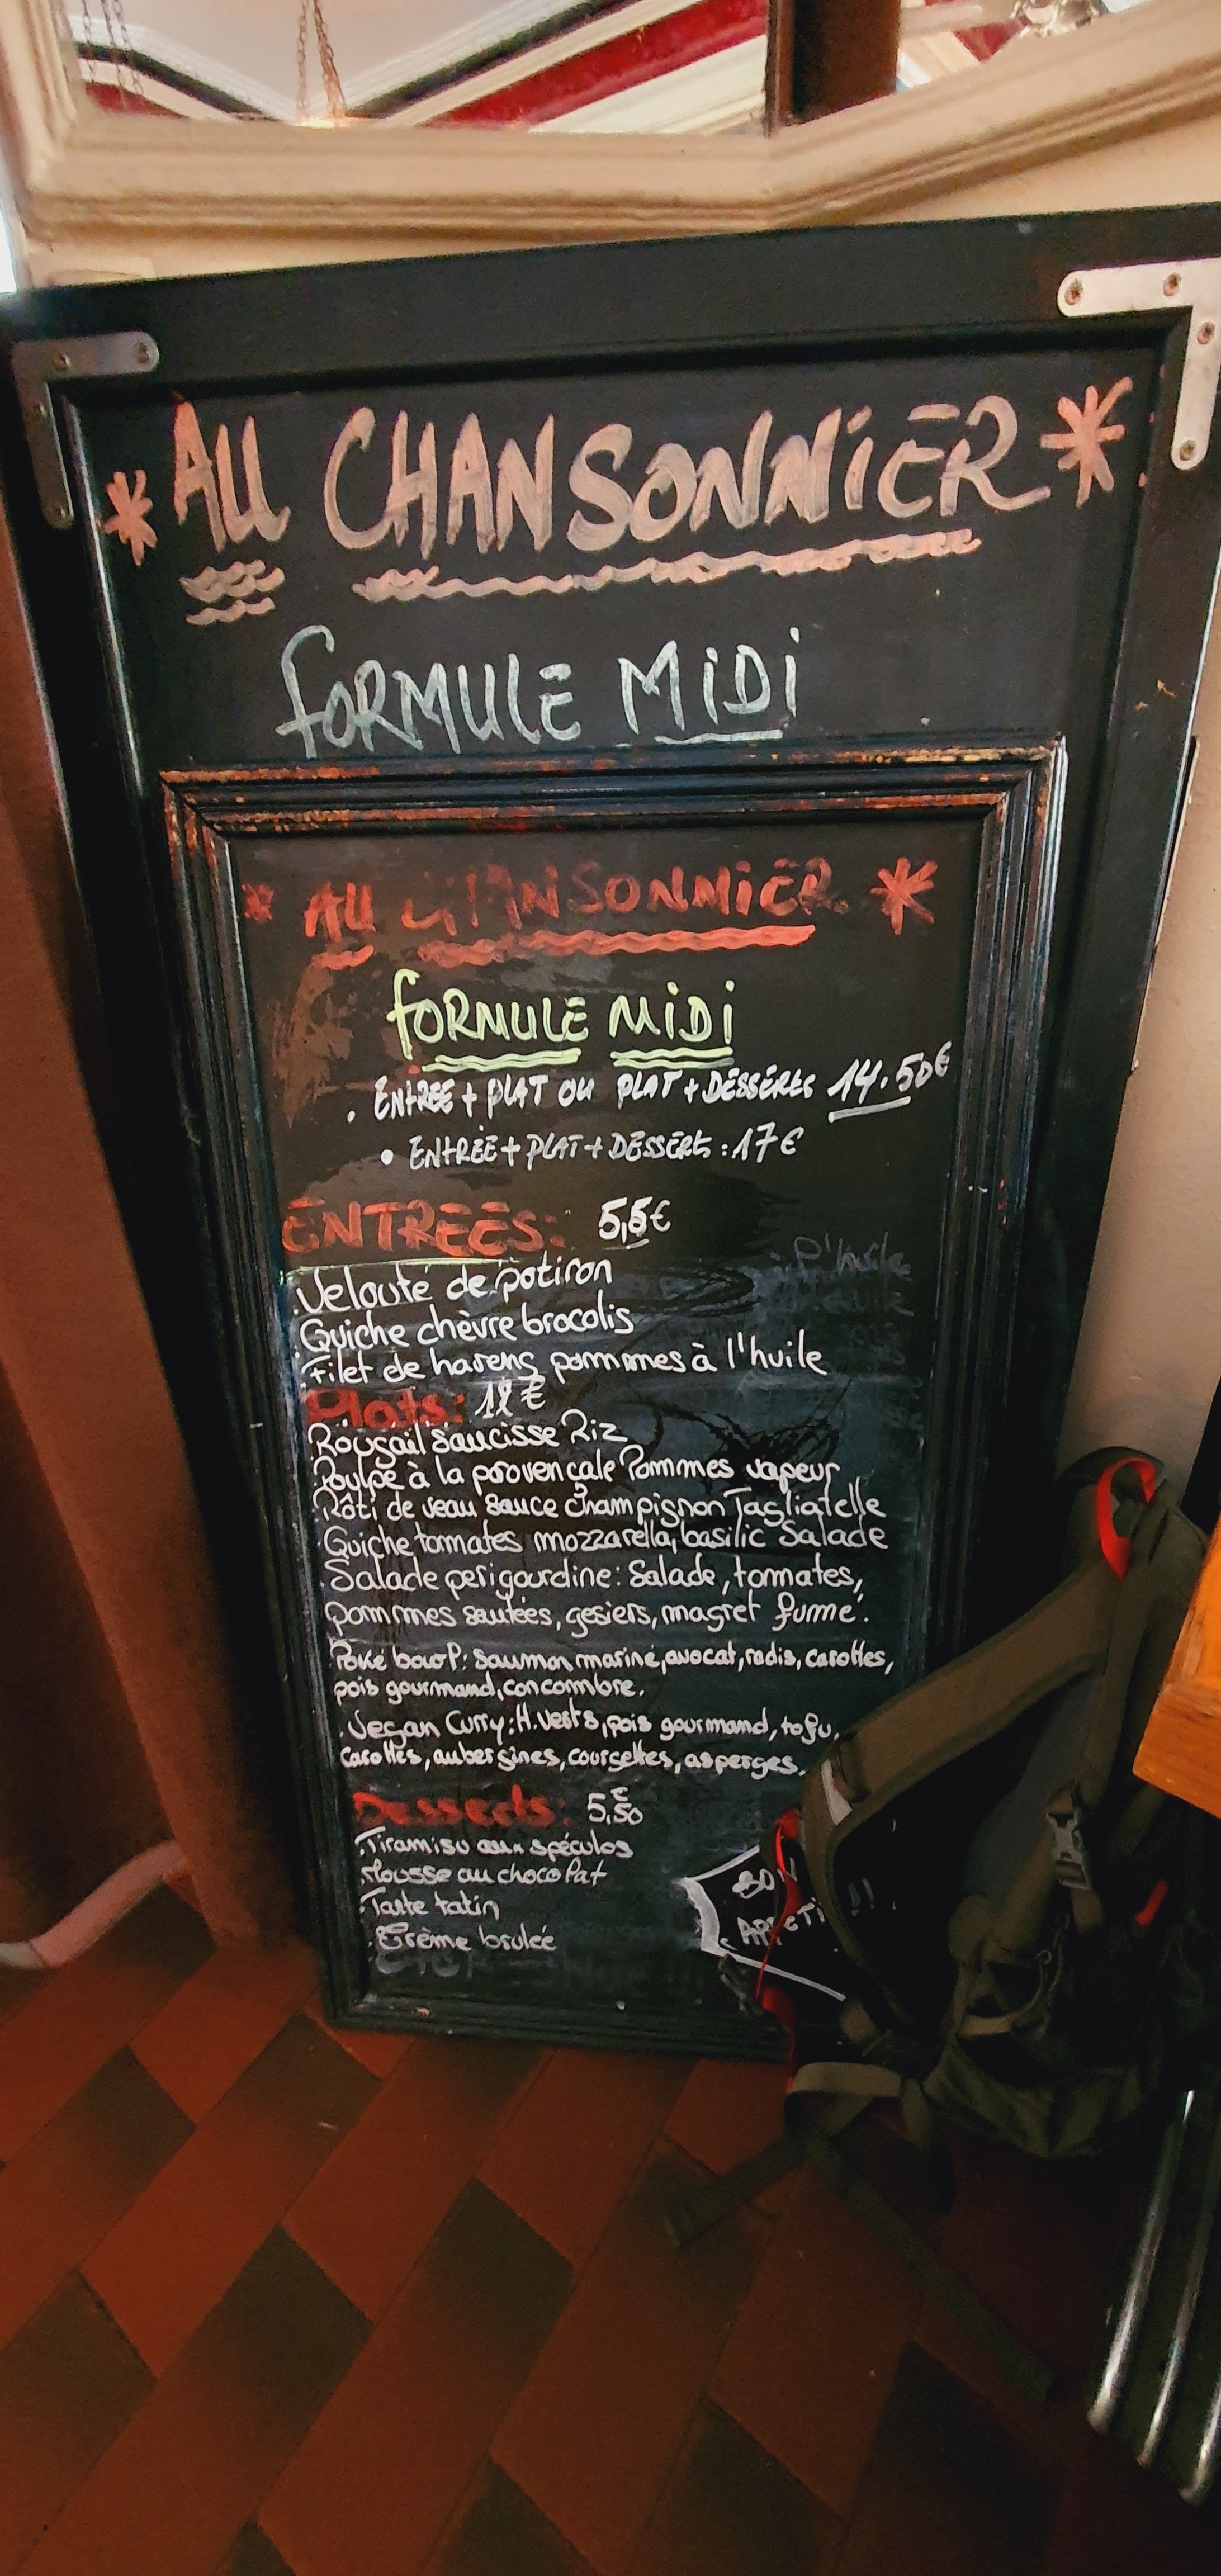 * AU CHANSONNIER *
FORMULE MIDI
* AU CHANSONNIER *
FORMULE MIDI
. ENTREE + PLAT OU PLAT + DESSERTS 14.50€
• ENTREE + PLAT + DESSERTS : 17€
ENTREES: 5,5€
. Velouté de potiron
. Quiche chèvre brocolis
. Filet de harengs pommes à l'huile
Plats: 12€
. Rougail saucisse Riz
. Poulpe à la provençale Pommes vapeur
. Rôti de veau sauce champignon Tagliatelle
. Quiche tomates mozzarella, basilic Salade
. Salade perigourdine: Salade, tomates,
pommes sautées, gesiers, magret fumé.
. Poké bowl: Saumon mariné, avocat, radis, carottes,
pois gourmand, concombre.
. Vegan Curry: H. verts, pois gourmand, tofu,
carottes, aubergines, courgettes, asperges.
Desserts: 5,50€
. Tiramisu aux spéculos
. Mousse au chocolat
. Tarte tatin
. Crème brulée
BON
APPETI